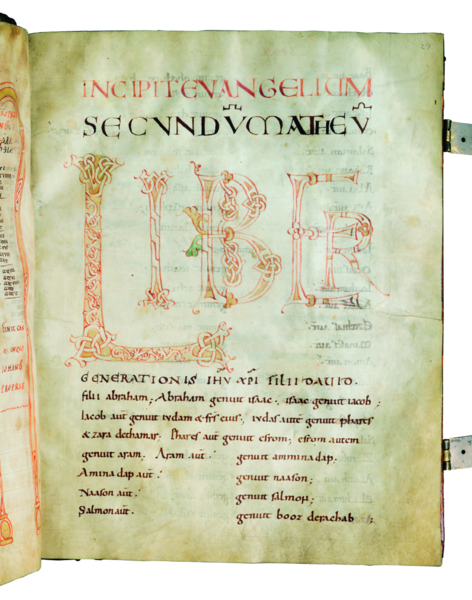 INCIPIT EVANGELIUM
SECUNDUM MATHEU
LIBER
GENERATIONIS IHV XPI FILII DAVID.
filii abraham; Abraham genuit isaac. isaac genuit iacob;
Iacob aut genuit iudam & frs eius; iudas aute genuit phares
& zara dethamar. Phares aut genuit esrom; esrom autem
genuit aram. Aram aut. genuit aminadap.
Aminadap aut. genuit naason;
Naason aut. genuit salmon;
Salmon aut. genuit booz derachab;